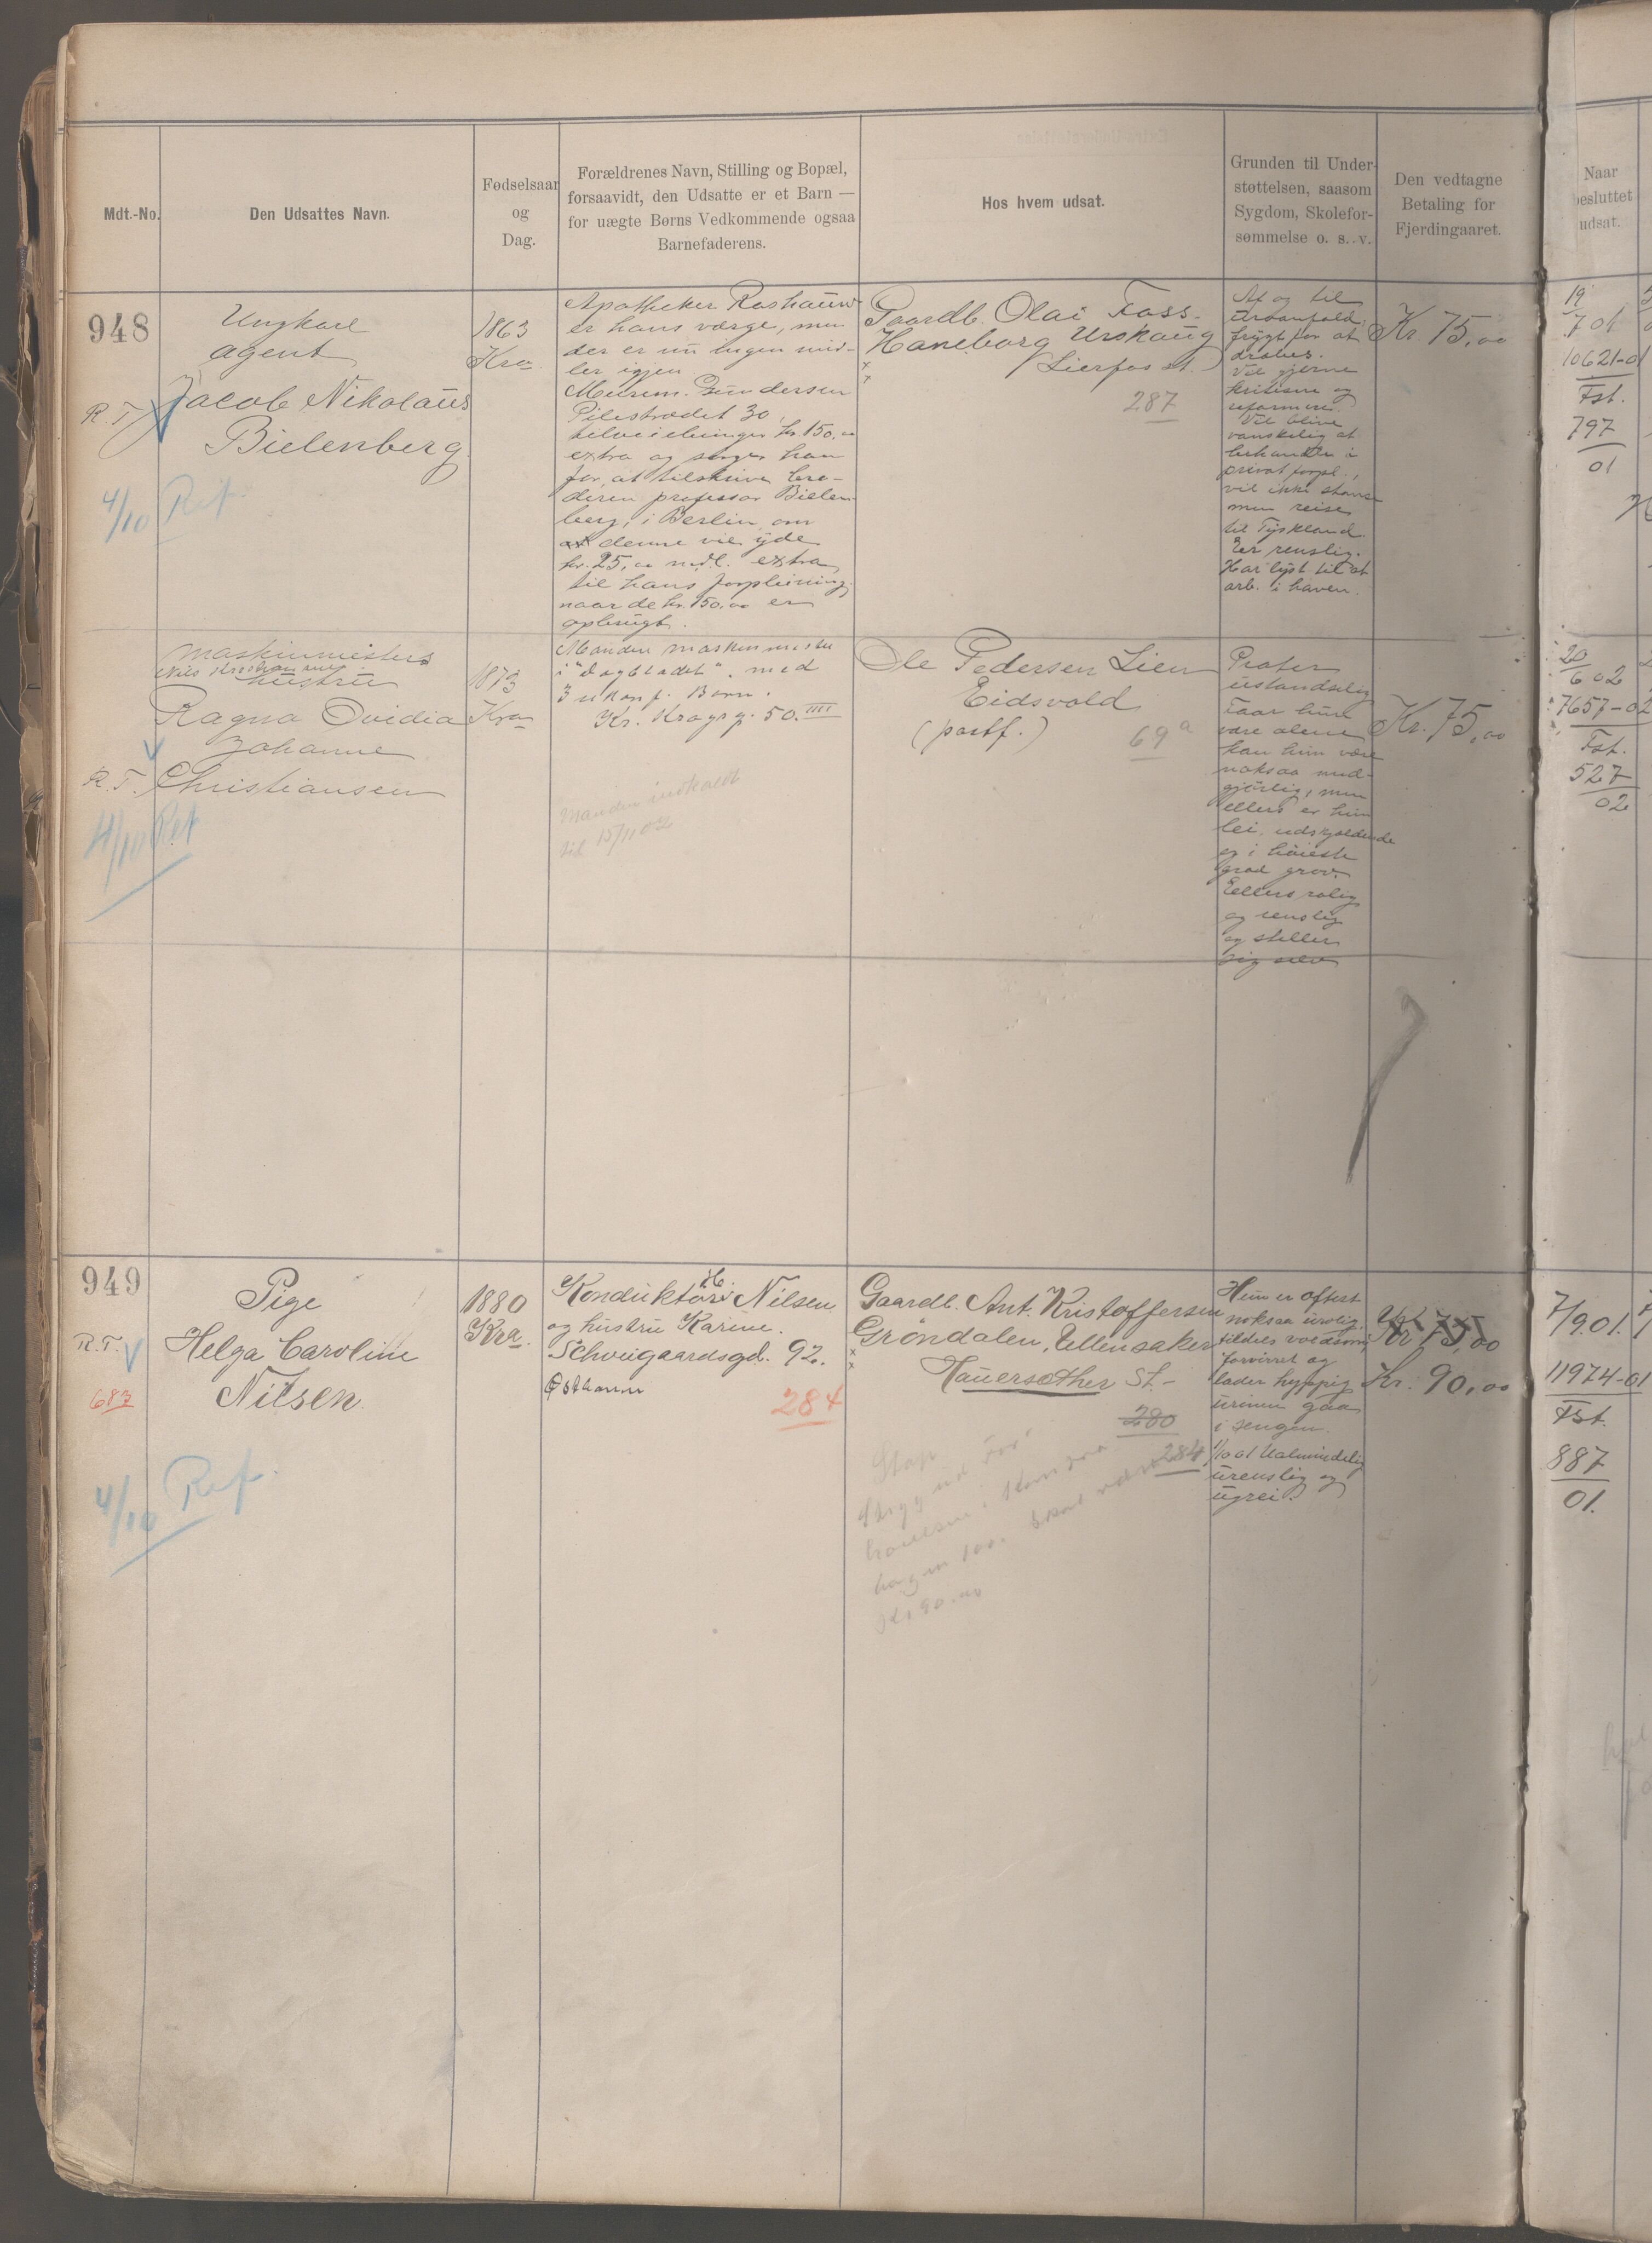 Mdt.-No.
Den Udsattes Navn.
Fødselsaar
og
Dag.
Forældrenes Navn, Stilling og Bopæl,
forsaavidt, den Udsatte er et Barn —
for uægte Børns Vedkommende ogsaa
Barnefaderens.
Hos hvem udsat.
Grunden til Under-
støttelsen, saasom
Sygdom, Skolefor-
sømmelse o. s. v.
Den vedtagne
Betaling for
Fjerdingaaret.
Naar
besluttet
udsat.
948
R. T.
4/10 Ref.
Ungkarl
agent
Jacob Nikolaus
Bielenberg
1863
Kra
Apotheker
er hans værge, men
der er nu ingen mid-
ler igjen
Gundersen
Pilestrædet 30,
kr. 150,00
extra og sørger han
for, at tilskrive bro-
deren professor Bielen-
berg, i Berlin, om
denne vil yde
kr. 25,00 mdl. extra
til hans forpleining,
naar de kr. 150,00 er
opbrugt.
Gaardb. Olai Foss
Haneborg Urskaug
(Lierfos st.)
287
Af og til
frygt for at
dræbes.
Vil gjerne
kritisere og
reformere.
Vil blive
vanskelig at
behandle i
privat forpl.,
vil ikke
men reise
til Tyskland.
Er renslig.
Har lyst til at
arb. i haven.
Kr. 75,00
19
7 01
10621-01
Fst.
797
01
R. T.
4/10 Ref
Maskinmesters
Nils
hustru
Ragna Ovidia
Johanne
Christiansen
1873
Kra
Manden maskinmester
i "Dagbladet" med
3 ukonf. Børn.
Kr. Kraggsg. 50. IIII
Manden indkaldt
til 15/11 02
Ole Pedersen Lien
Eidsvold
(postf.)
69 a
Prater
ustandselig
Faar hun
være alene
kan hun være
noksaa med-
gjørlig, men
ellers er hun
lei, udskjeldende
og i høieste
grad grov.
Ellers rolig
og renslig
og steller
sig selv
Kr. 75,00
20
6 02
7657-02
Fst.
527
02
949
R. T.
683
4/10 Ref.
Pige
Helga Caroline
Nilsen
1880
Kra.
Konduktør H. Nilsen
og hustru Karine.
Schweigaardsgd. 92.
284
Gaardb. Ant. Kristoffersen
Grøndalen, Ullensaker
Hauersæther St.
280
284
Hun er oftest
noksaa urolig,
tildels voldsom,
forvirret og
lader hyppig
urinen gaa
i sengen.
1/10 01 Ualmindelig
urenslig og
ugrei.
Kr 75,00
Kr. 90,00
7/9 01.
11974-01
Fst.
887
01.